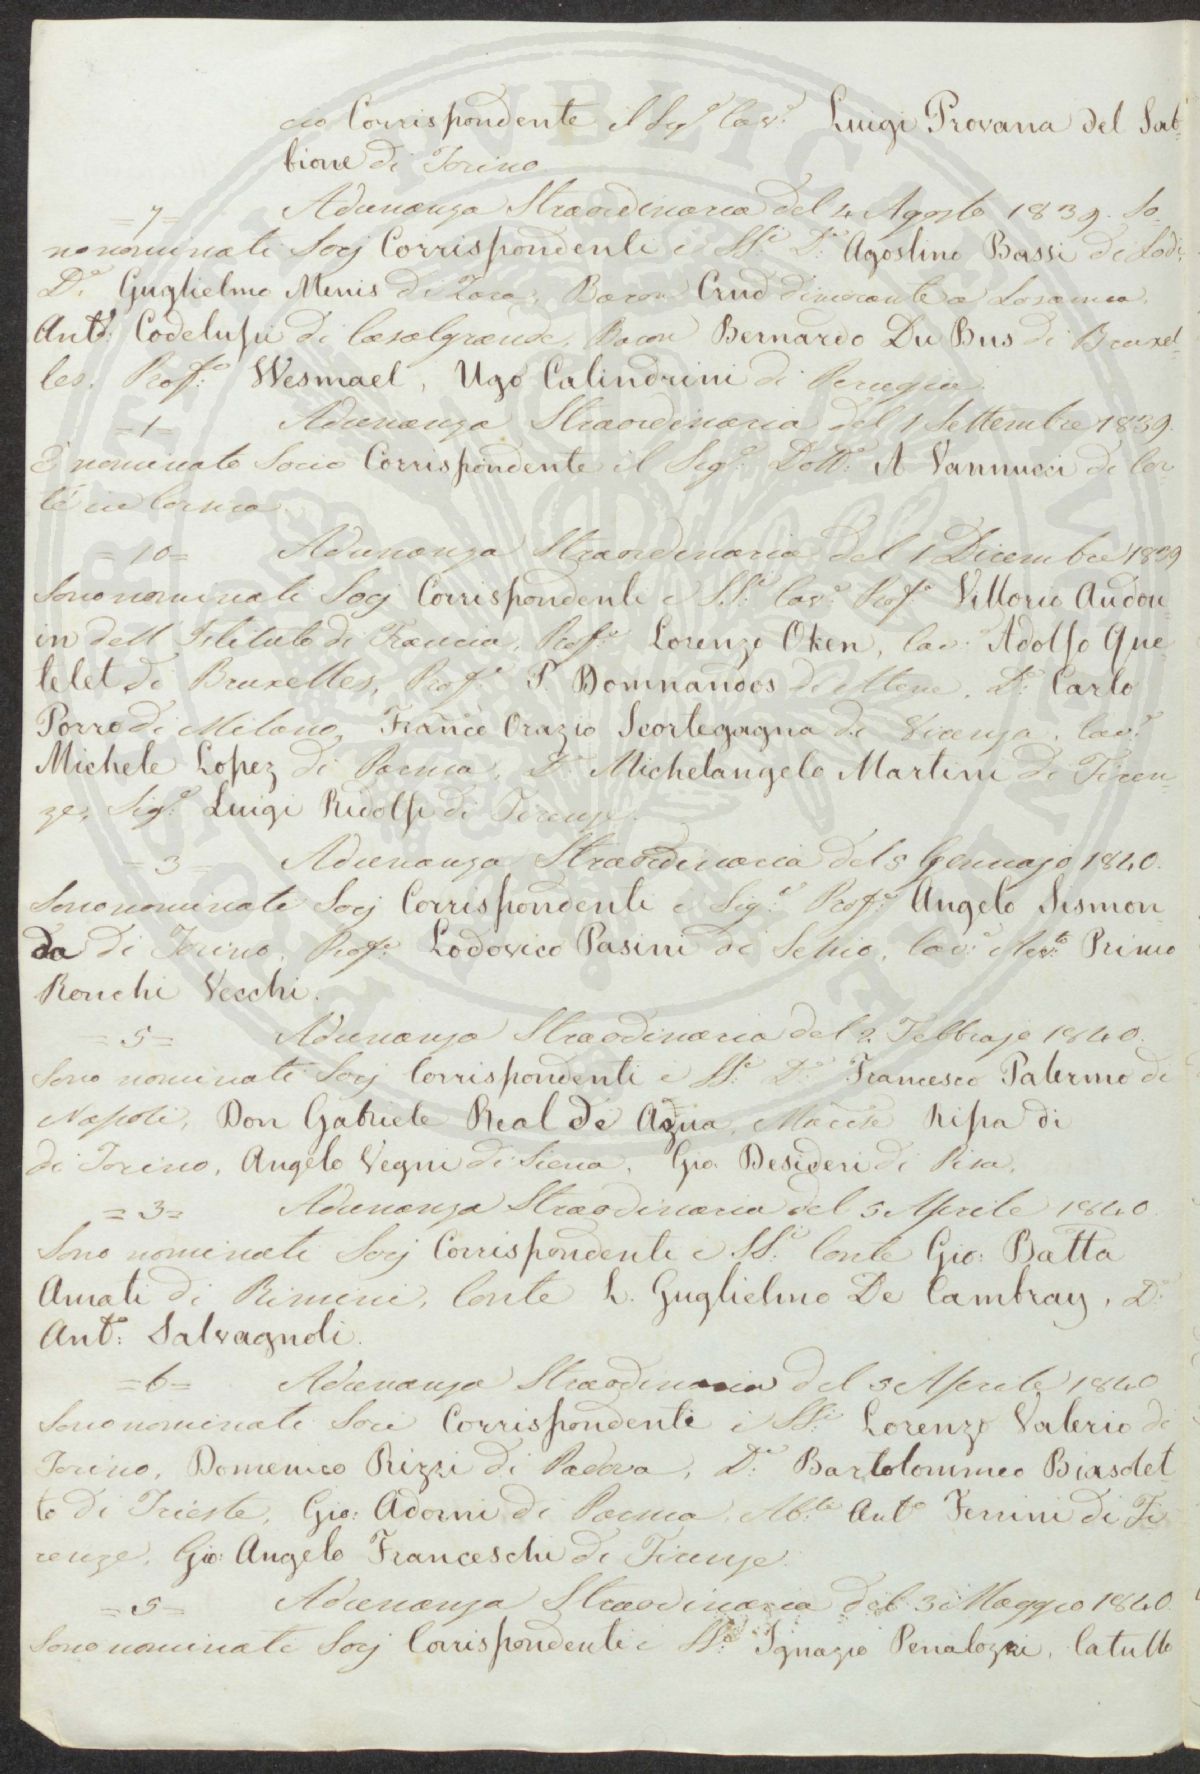 cio Corrispondente il Sigr. Cavr. Luigi Provana del Sab-
bione di Torino
=7= Adunanza Straordinaria del 4 Agosto 1839. So-
no nominati Socj Corrispondenti i SSi. Dr. Agostino Bassi di Lodi,
Dr. Guglielmo Menis di Zara, Baron Crud dimorante a Losanna,
Anto. Codelupi di Casalgrande, Baron Bernardo Du Bus di Bruxel-
les, Profr. Wesmael, Ugo Calindrini di Perugia.
=1= Adunanza Straordinaria del 1 Settembre 1839.
È nominato Socio Corrispondente il Sigr. Dottr. A Vannucci di Cor-
té in Corsica.
=10= Adunanza Straordinaria del 1 Dicembre 1839
Sono nominati Socj Corrispondenti i SSi. Cavr. Profr. Vittorio Audou-
in dell Istituto di Francia, Profr. Lorenzo Oken, Cav. Adolfo Que-
telet di Bruxelles, Profr. P. Domnandos di Atene, Dr. Carlo
Porro di Milano, Franco Orazio Scortegagna di Vicenza, Cavr.
Michele Lopez di Parma, Dr. Michelangelo Martini di Firen-
ze, Sigr. Luigi Ridolfi di Firenze.
=3= Adunanza Straordinaria del 5 Gennajo 1840.
Sono nominati Socj Corrispondenti i Sigri. Profr. Angelo Sismon-
da di Torino, Profr. Lodovico Pasini di Schio, Cavr. Avvto. Primo
Ronchi Vecchi.
=5= Adunanza Straodinaria del 2 Febbrajo 1840.
Sono nominati Socj Corrispondenti i SSi. Dr. Francesco Palermo di
Napoli, Don Gabriele Real de Azua, Mse Ripa di
di Torino, Angelo Vegni di Siena, Gio. Desideri di Pisa.
=3= Adunanza Straodinaria del 5 Aprile 1840.
Sono nominati Socj Corrispondenti i SSi. Conte Gio: Batta
Amati di Rimini, Conte L. Guglielmo De Cambray, Dr.
Anto: Salvagnoli.
=6= Adunanza Straodinaria del 5 Aprile 1840
Sono nominati Soci Corrispondenti i SSi. Lorenzo Valerio di
Torino, Domenico Rizzi di Padova, Dr. Bartolommeo Biasolet-
to di Trieste, Gio: Adorni di Parma, Abte. Anto Ferrini di Fi-
renze, Gio: Angelo Franceschi di Firenze.
=5= Adunanza Straordinaria del 3 Maggio 1840
Sono nominati Socj Corrispondenti i SSi. Ignazio Penalozzi, Catullo